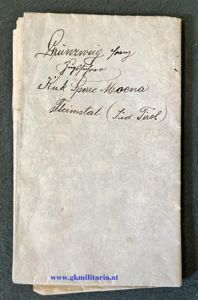 Grünzweig Franz
Zugsführer
K.u.K. Sperre Moena
Fleimstal (Süd Tirol)
www.gkmilitaria.at